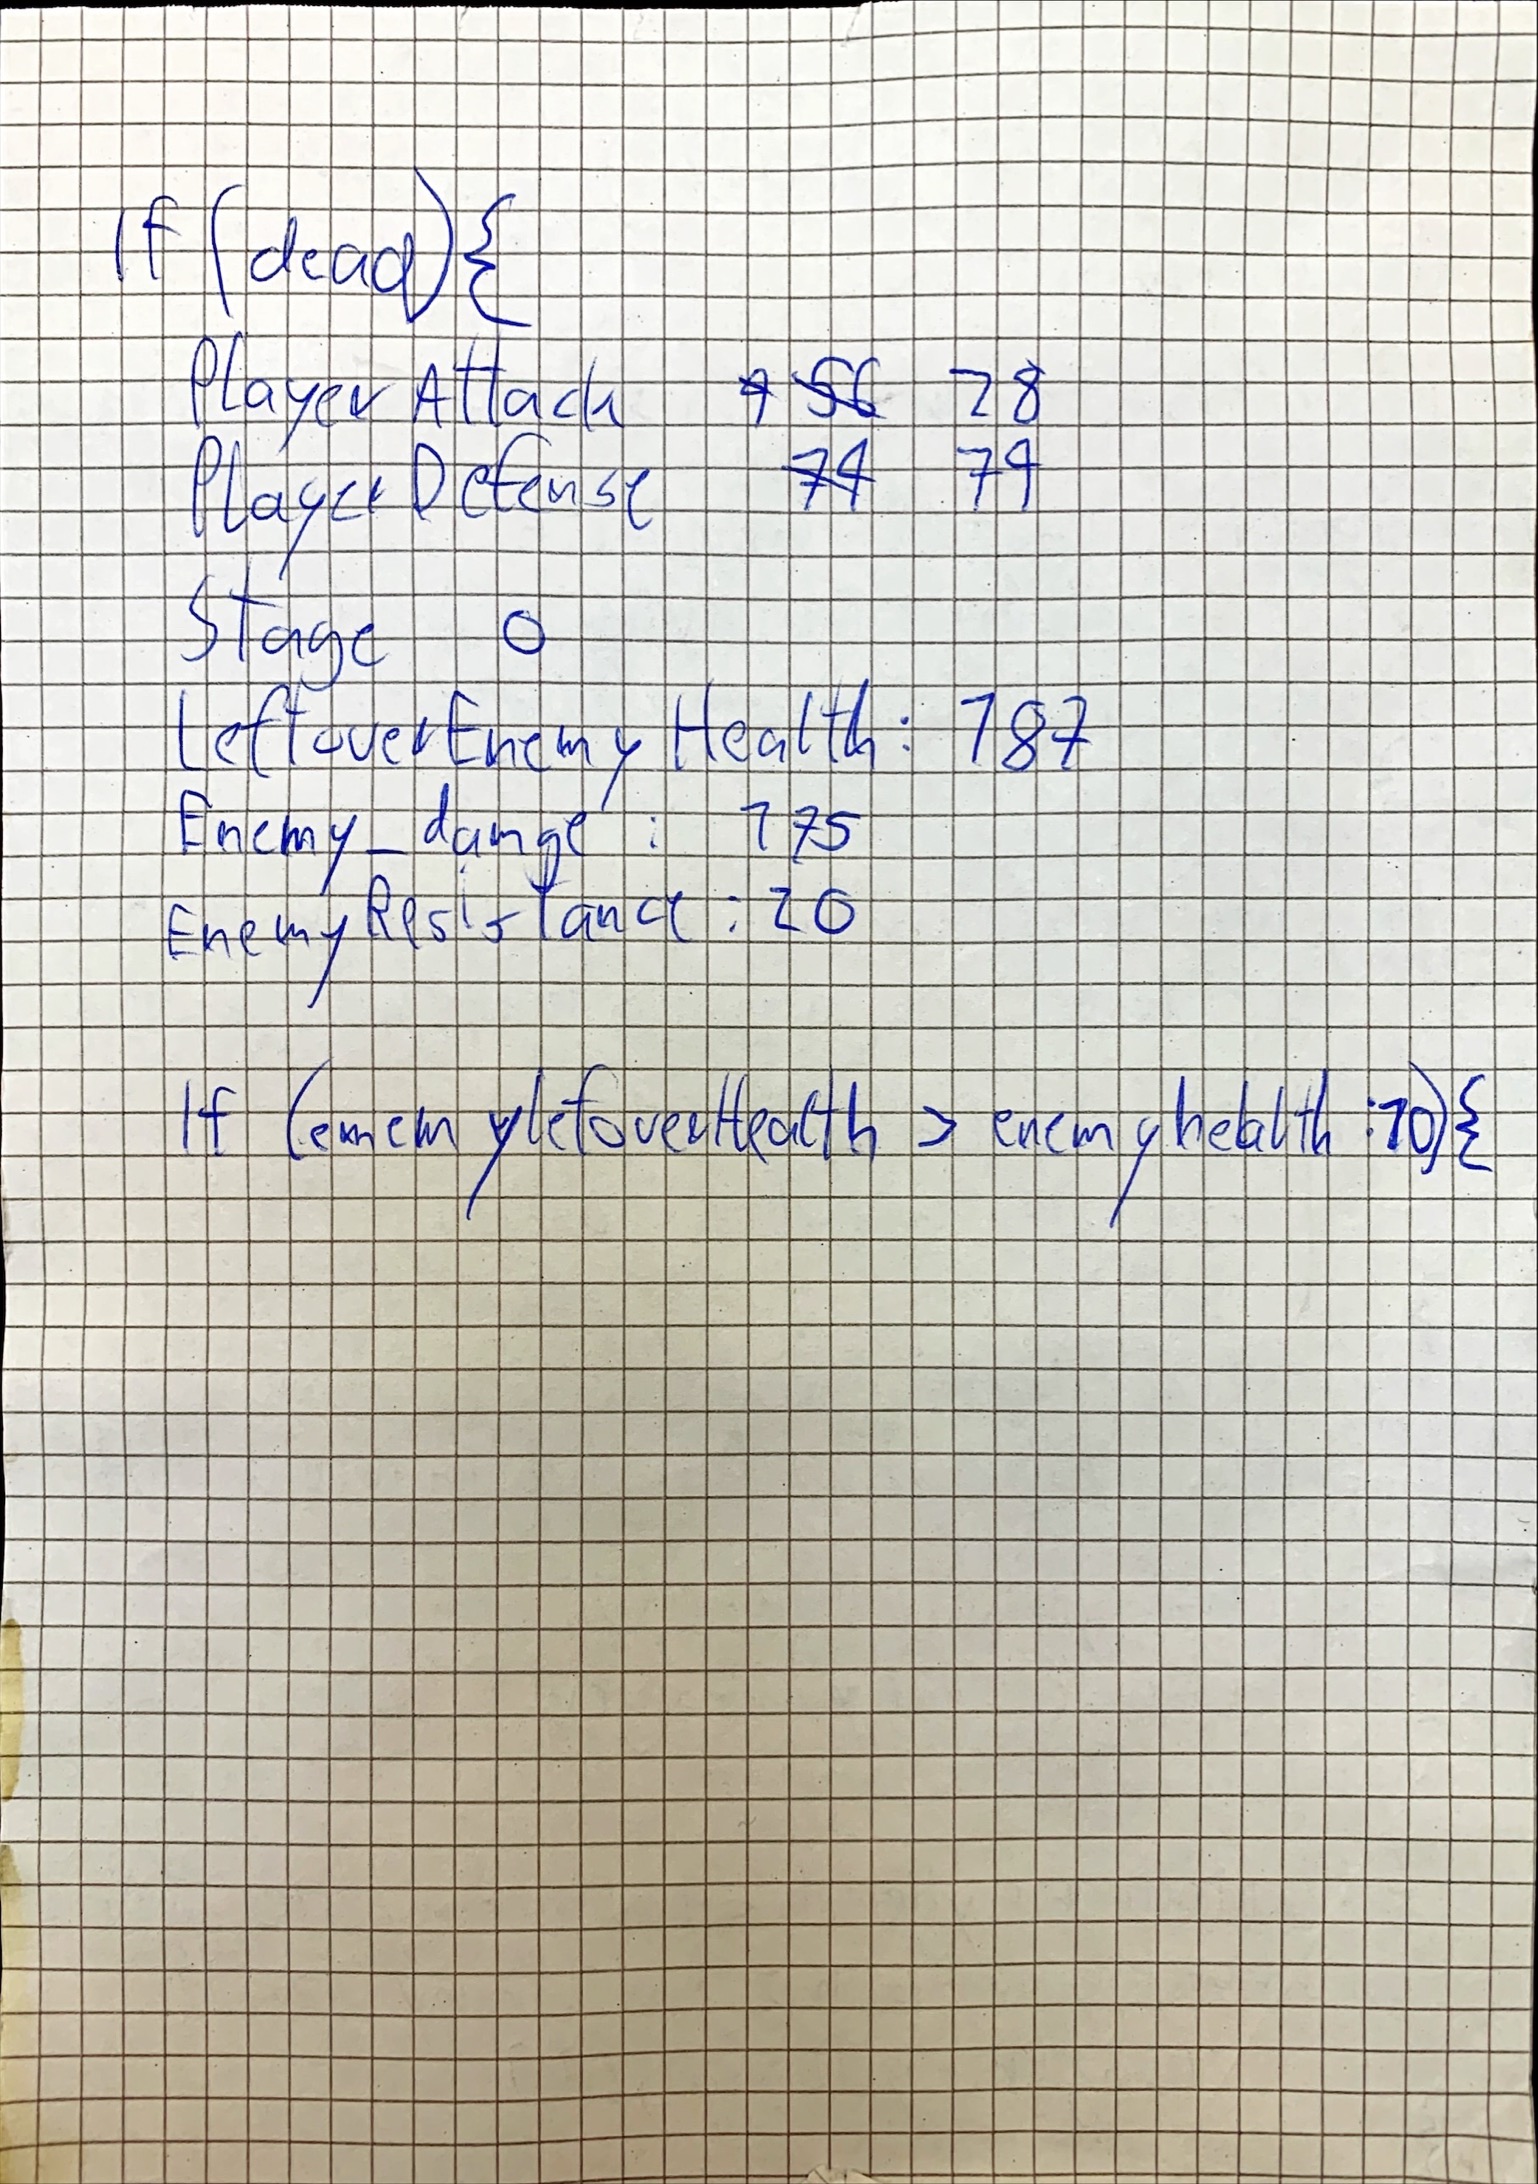 If (dead){
Player Attack 9 56 28
Player Defense 74 79
Stage 0
LeftoverEnemy Health: 187
Enemy_damge : 175
EnemyResistance : 20
If (enemyleftoverHealth > enemyhealth :10){